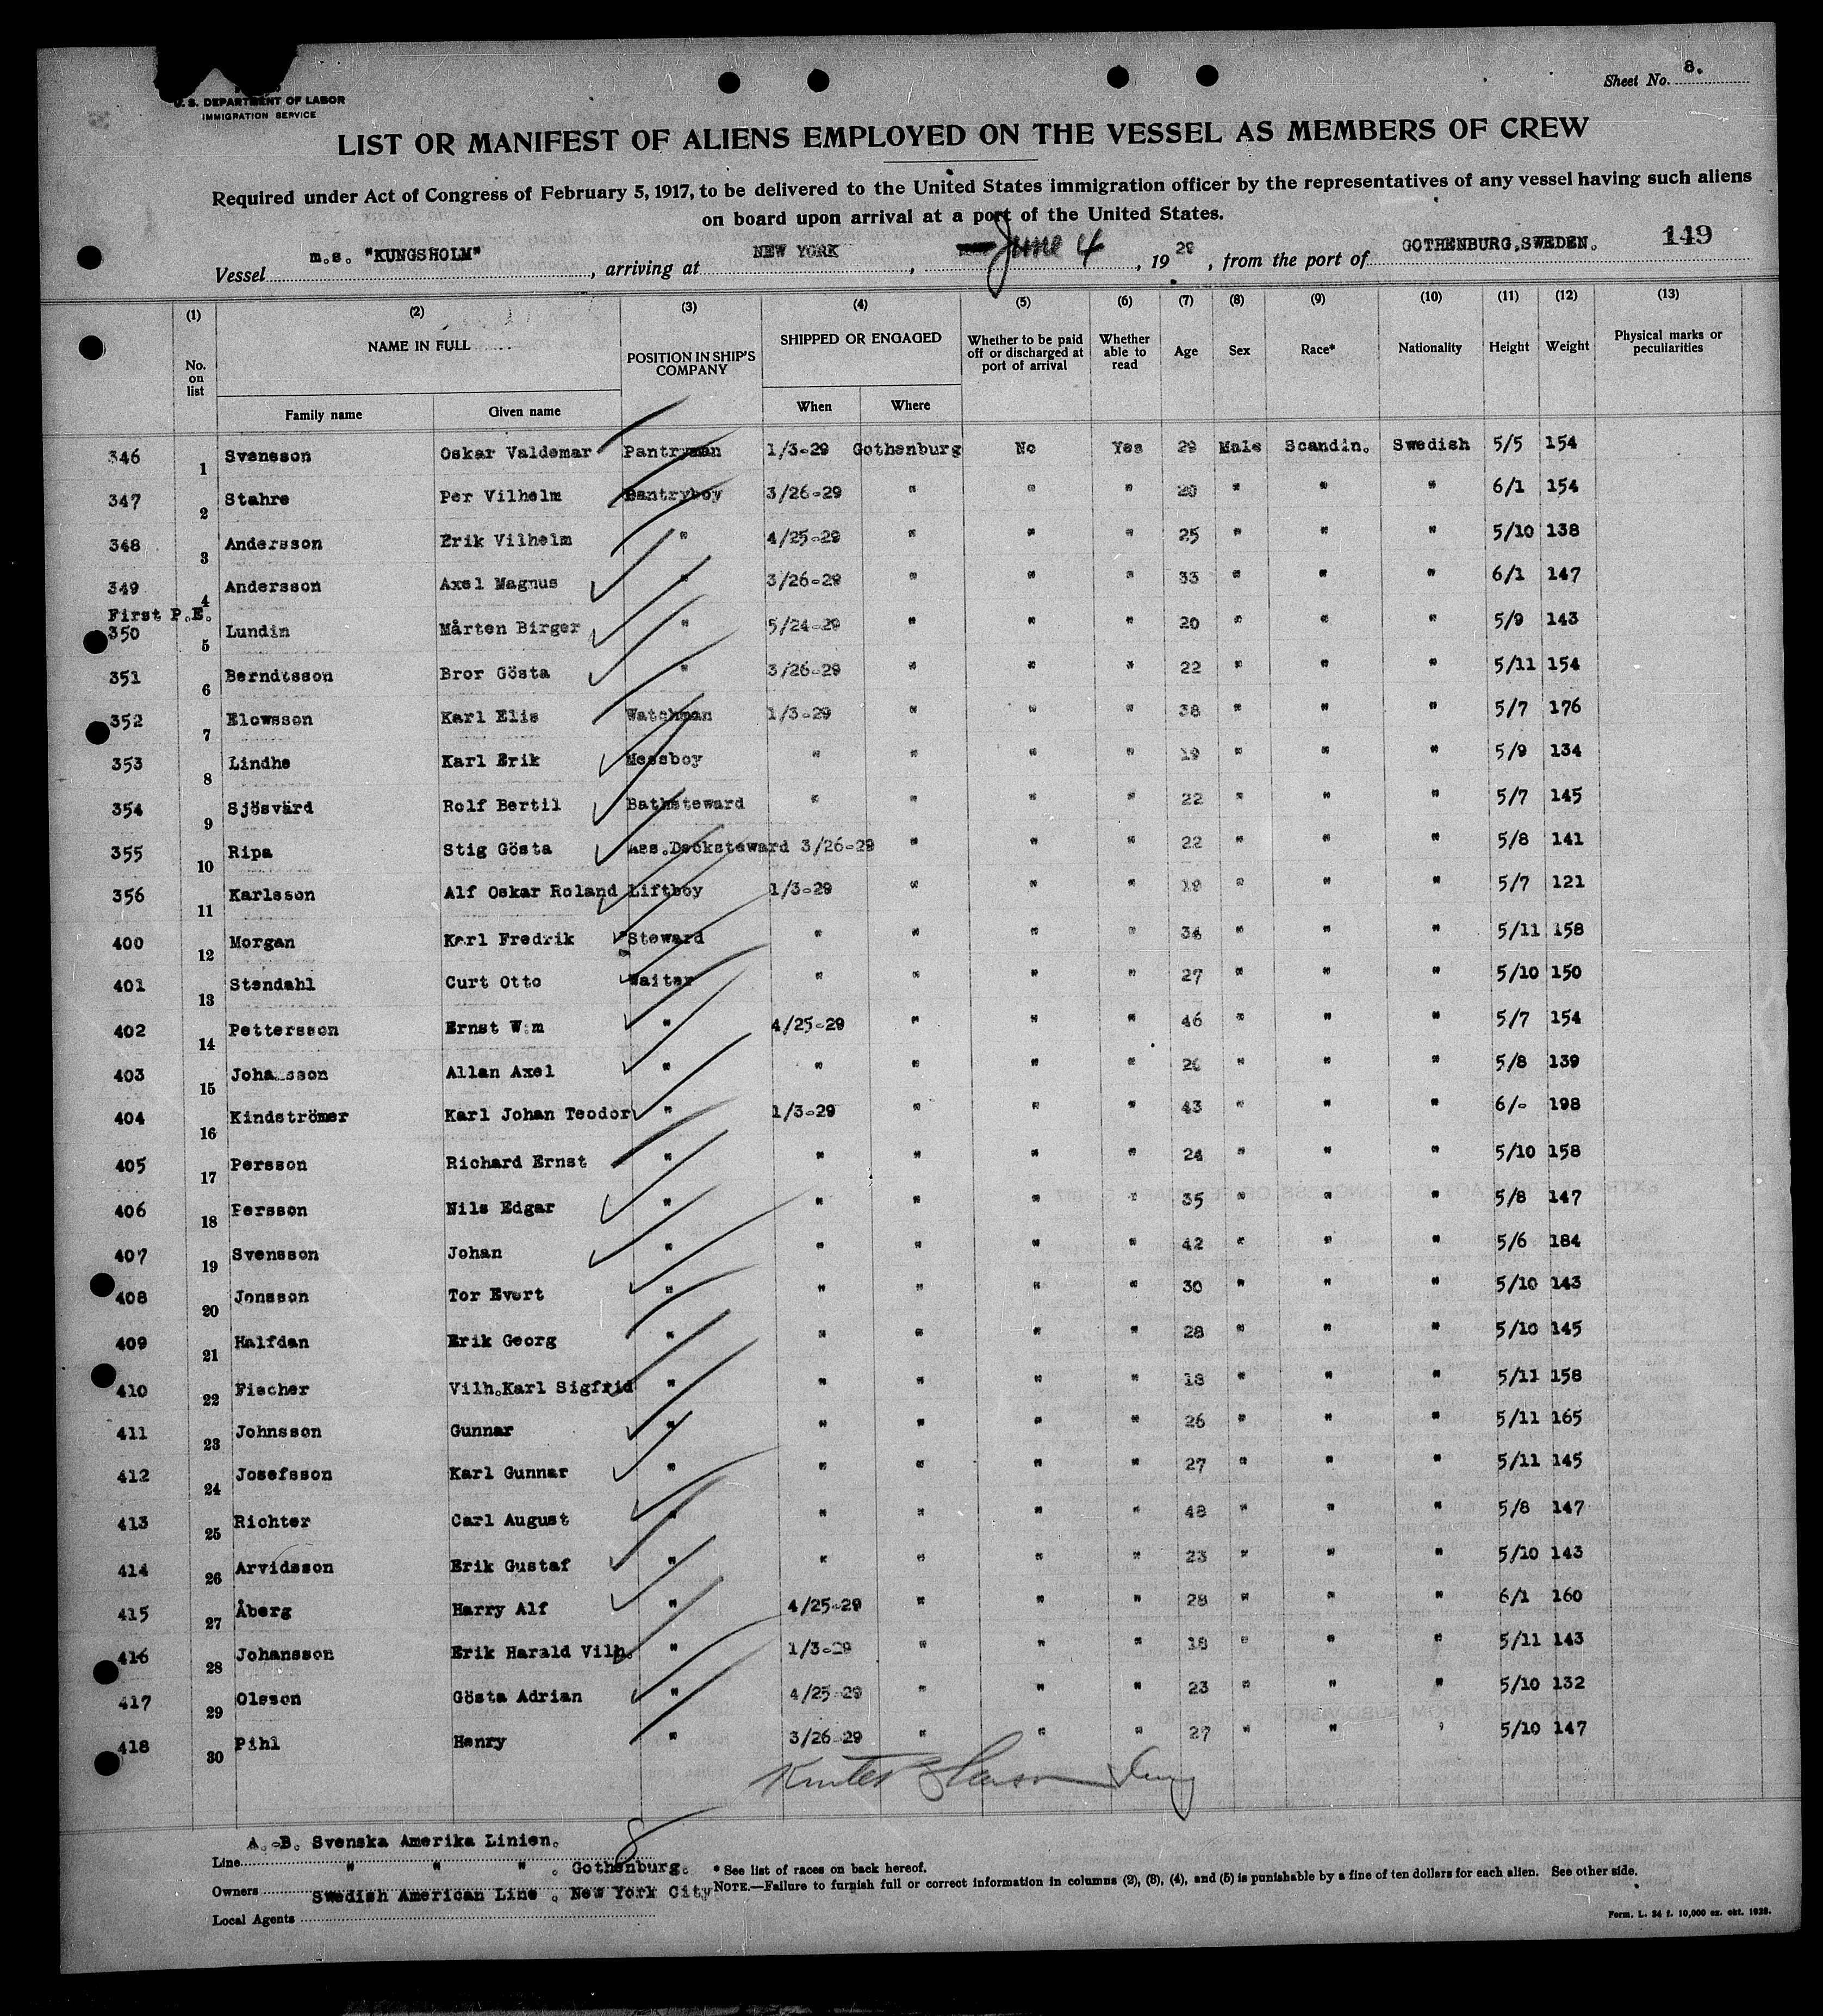 U. S. DEPARTMENT OF LABOR
IMMIGRATION SERVICE
Sheet No. 8.
LIST OR MANIFEST OF ALIENS EMPLOYED ON THE VESSEL AS MEMBERS OF CREW
Required under Act of Congress of February 5, 1917, to be delivered to the United States immigration officer by the representatives of any vessel having such aliens
on board upon arrival at a port of the United States.
Vessel m.s. "KUNGSHOLM", arriving at NEW YORK, June 4, 1929, from the port of GOTHENBURG,SWEDEN. 149
(1) (2) (3) (4) (5) (6) (7) (8) (9) (10) (11) (12) (13)
No. on list NAME IN FULL POSITION IN SHIP'S COMPANY SHIPPED OR ENGAGED Whether to be paid off or discharged at port of arrival Whether able to read Age Sex Race* Nationality Height Weight Physical marks or peculiarities
Family name Given name When Where
346 1 Svensson Oskar Valdemar Pantryman 1/3-29 Gothenburg No Yes 29 Male Scandin. Swedish 5/5 154
347 2 Stahre Per Vilhelm Pantryboy 3/26-29 " " " 20 " " " 6/1 154
348 3 Andersson Erik Vilhelm " 4/25-29 " " " 25 " " " 5/10 138
349 4 Andersson Axel Magnus " 3/26-29 " " " 33 " " " 6/1 147
First P.E.
350 5 Lundin Mårten Birger " 5/24-29 " " " 20 " " " 5/9 143
351 6 Berndtsson Bror Gösta " 3/26-29 " " " 22 " " " 5/11 154
352 7 Elowsson Karl Elis Watchman 1/3-29 " " " 38 " " " 5/7 176
353 8 Lindhe Karl Erik Messboy " " " " 19 " " " 5/9 134
354 9 Sjösvärd Rolf Bertil Bathsteward " " " " 22 " " " 5/7 145
355 10 Ripa Stig Gösta Ass.Decksteward 3/26-29 " " " 22 " " " 5/8 141
356 11 Karlsson Alf Oskar Roland Liftboy 1/3-29 " " " 19 " " " 5/7 121
400 12 Morgan Karl Fredrik Steward " " " " 34 " " " 5/11 158
401 13 Stendahl Curt Otto Waiter " " " " 27 " " " 5/10 150
402 14 Pettersson Ernst W:m " 4/25-29 " " " 46 " " " 5/7 154
403 15 Johansson Allan Axel " " " " " 26 " " " 5/8 139
404 16 Kindströmer Karl Johan Teodor " 1/3-29 " " " 43 " " " 6/- 198
405 17 Persson Richard Ernst " " " " " 24 " " " 5/10 158
406 18 Persson Nils Edgar " " " " " 35 " " " 5/8 147
407 19 Svensson Johan " " " " " 42 " " " 5/6 184
408 20 Jonsson Tor Evert " " " " " 30 " " " 5/10 143
409 21 Halfdan Erik Georg " " " " " 28 " " " 5/10 145
410 22 Fischer Vilh.Karl Sigfrid " " " " " 18 " " " 5/11 158
411 23 Johnsson Gunnar " " " " " 26 " " " 5/11 165
412 24 Josefsson Karl Gunnar " " " " " 27 " " " 5/11 145
413 25 Richter Carl August " " " " " 48 " " " 5/8 147
414 26 Arvidsson Erik Gustaf " " " " " 23 " " " 5/10 143
415 27 Åberg Harry Alf " 4/25-29 " " " 28 " " " 6/1 160
416 28 Johansson Erik Harald Vilh. " 1/3-29 " " " 18 " " " 5/11 143
417 29 Olsson Gösta Adrian " 4/25-29 " " " 23 " " " 5/10 132
418 30 Pihl Henry " 3/26-29 " " " 27 " " " 5/10 147
Line A.-B. Svenska Amerika Linien. 8
Owners " " " . Gothenburg.
Local Agents Swedish American Line . New York City
* See list of races on back hereof.
NOTE.—Failure to furnish full or correct information in columns (2), (3), (4), and (5) is punishable by a fine of ten dollars for each alien. See other side.
Form. L. 34 f. 10,000 ex. okt. 1928.